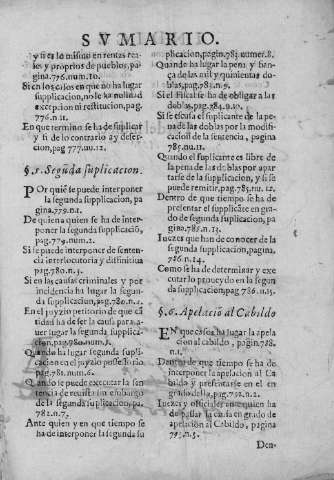 SVMARIO.
y si es lo mismo en rentas rea
les y proprios de pueblos, pa
gina.776.num.10.
Si en los casos en que no ha lugar
supplicacion, no le ha nulidad
excepcion ni restitucion, pag.
776.n.11.
En que termino se ha de suplicar
y si de lo contrario ay deser-
cion, pag 777.nu.12.
§.5. Segũda suplicacion.
POr quiẽ se puede interponer
la segunda supplicacion, pa
gina.779.n.1.
De quien a quien se ha de inter-
poner la segunda supplicaciõ,
pag.779.num.2.
Si se puede interponer de senten
cia interlocutoria y difinitiua
pag.780.n.3.
Si en las causas criminales y por
incidencia ha lugar la segun-
da supplicacion, pag.780.n.4.
En el juyzio petitorio de que cã
tidad ha de ser la causa para a-
uer lugar la segunda supplica-
cion, pag.780.num.5.
Quando ha lugar segunda supli-
cacion en el juyzio possessorio.
pag.781.num.6.
Quando se puede executar la sen
tencia de reuista sin embargo
de la segunda suplicacion, pa
782.n.7.
Ante quien y en que tiempo se
ha de interponer la segunda su
plicacion, pagin.783.numer.8.
Quando ha lugar la pena y fian-
ça de las mil y quinientas do-
blas, pag.783.n.9.
Si el Fiscal se ha de obligar a las
doblas, pag.784.n.10.
Si se escusa el suplicante de la pe-
na de las doblas por la modifi-
cacion de la sentencia, pagina
785.nu.11.
Quando el suplicante es libre de
la pena de las doblas por apar
tarse de la suplicacion, y si se
puede remitir, pag.785.nu.12.
Dentro de que tiempo se ha de
presentar el supplicãte en gra-
do de segunda suplicacion, pa
gina.785.n.13.
Iuezes que han de conocer de la
segunda supplicacion, pagina.
786.n.14.
Como se ha de determinar y exe
cutar lo proueydo en la segun
da suplicacion, pag 786.n.15.
§.6. Apelaciõ al Cabildo
EN que casos ha lugar la apela
cion al cabildo, pagin.788.
n.1.
Dentro de que tiempo se ha de
interponer la apelacion al Ca
bildo y presentarse en el en
grado della, pag.791.n.2.
Iuezes y officiales en quien ha
de passar la causa en grado de
apelacion al Cabildo, pagina
Den-